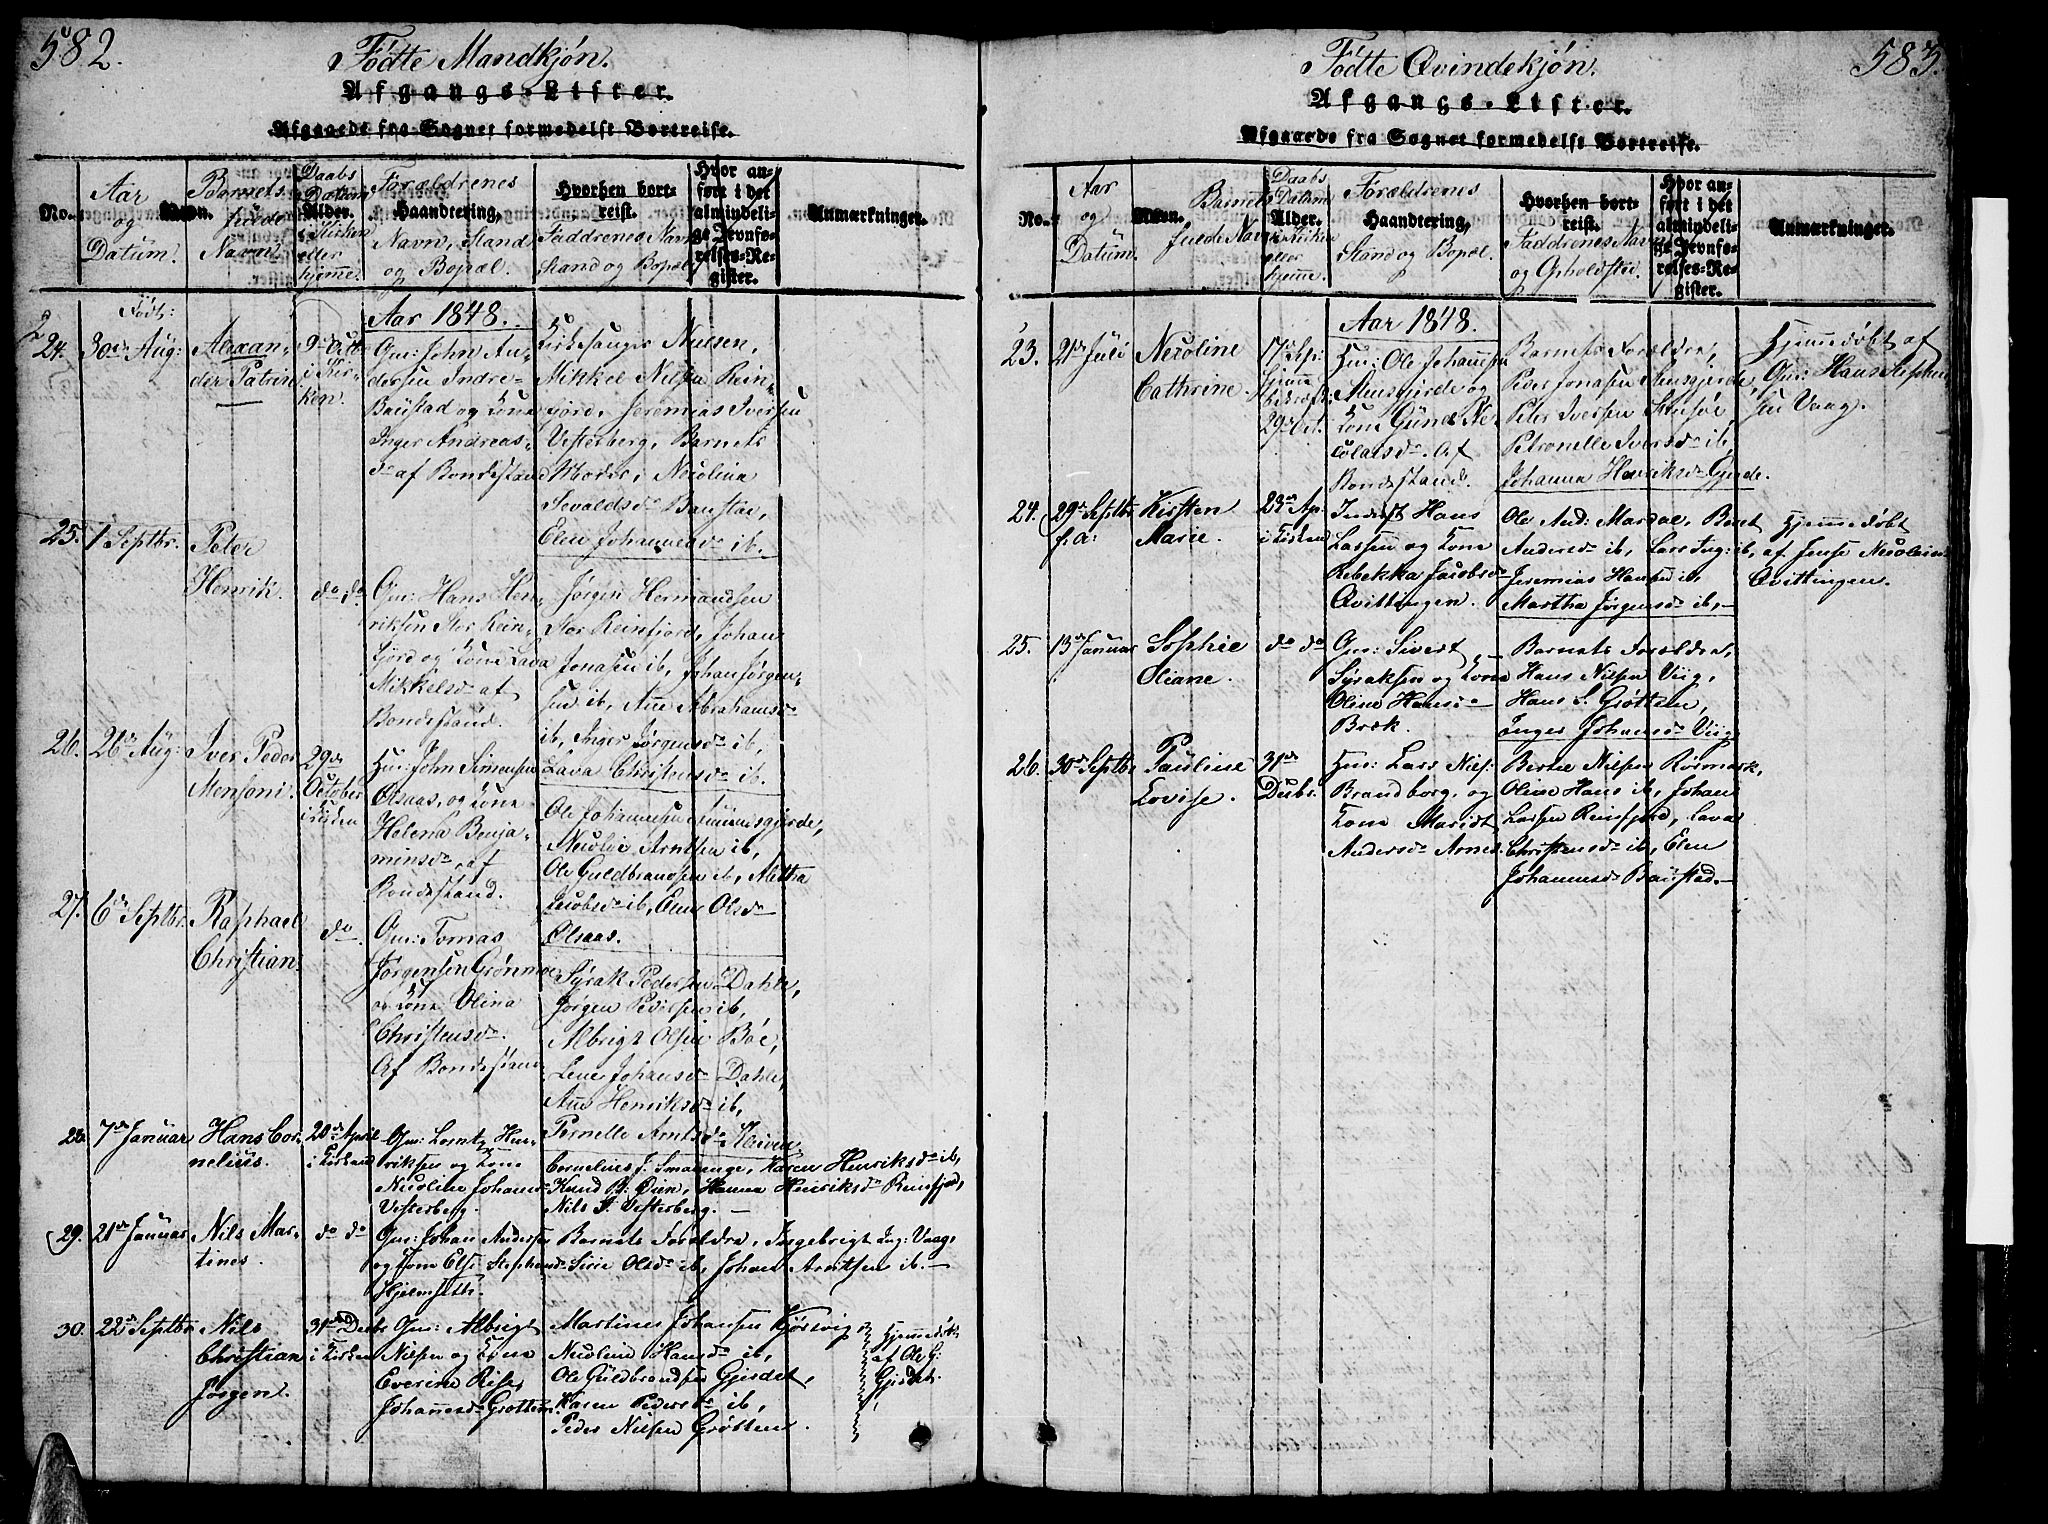 582.
Fødte Mandkjøn.
Afgangs-Lister.
Afgaaede fra Sognet formedelst Bortreise.
No.
Aar
og
Datum.
Navn.
Barnets
fulde
Navn.
Daabs
Datum
Alder.
i Kirken
eller
hjemme.
Forældrenes
Haandtering,
Navn, Stand
og Bopæl.
Hvorhen bort-
reist.
Faddrenes Navn
Stand og Bopæl.
Hvor an-
ført i det
almindeli-
ge Jevnfø-
relses-Re-
gister.
Anmærkninger.
Født:
Aar 1848.
24.
30te Aug:
Alexan-
der Patrin
9de Oct
i Kir-
ken.
Gm: John An-
dersen Indre-
Baustad og Kone
Inger Andreas-
dr af Bondestand
Kirkesanger Nielsen,
Mikkel Nilsen Rein-
fjord, Jeremias Iversen
Vesterberg, Barnets
Moder, Nicolina
Sevaldsdr Baustad,
Elen Johannesdr ib.
25.
1 Septbr.
Peter
Henrik.
do do
Gm: Hans Hen-
riksen Stor Rein-
fjord og Kone Lava
Mikkelsdr af
Bondestand.
Jørgen Hermandsen
Stor Reinfjord, Johan
Jonasen ib, Johan Jørgen-
sen ib, Ane Abrahamsdr
ib, Inger Jørgensdr ib,
Lava Christensdr ib.
26.
26de Aug:
Iver Peder
Mensoni.
29de
October
i Kirken
Hm: John Simensen
Olsaas, og Kone
Helena Benja-
minsdr af
Bondestand.
Ole Johannesen
Nicolai Arntsen ib,
Ole Guldbrandsen ib, Mettha
Jacobsdr ib, Elen Olsdr
Olsaas.
27.
6de Septbr.
Raphael
Christian.
do
Gm: Tomas
Jørgensen Grønmoe
og Kone Olina
Christensdr.
Af Bondestand
Syrak Pedersen Dahle,
Jørgen Pedersen ib,
Albrigt Olsen Bøe,
Lene Johansdr Dahle,
Ane Henriksdr ib,
Pernelle Arntsdr Kleiven,
28.
7de Januar
Hans Cor-
nelius.
20de April
i Kirken
Gm: Lornts Hen-
riksen og Kone
Nicoline Johansdr
Vesterberg.
Cornelius J. Smalange, Karen Henriksdr ib,
Knud B. Øien, Hanna Henriksdr Reinfjord,
Nils J. Vesterberg.
29.
21de Januar
Nils Mar-
tines.
do do
Gm: Johan Andersen
og Kone Else Stephensdr
Hjelmseth.
Barnets Forældre, Ingebrigt Ing: Vaag,
Sirie Olsdr ib, Johan Arntsen ib.
30.
22de Septbr
Nils
Christian
Jørgen.
31te Decbr
i Kirken
Gm: Albrigt
Nilsen og Kone
Everine Rise,
Johannesdr Grøtten.
Martines Johansen Kjørsvig
Nicoline Hansdr ib,
Ole Guldbrandsen Gjerdet,
Karen Pedersdr ib,
Peder Nilsen Grøtten.
Hjemmedøbt
af Ole G:
Gjerdet.
583.
Fødte Qvindekjøn.
Afgangs-Lister.
Afgaaede fra Sognet formedelst Bortreise.
No.
Aar
og
Datum.
Navn.
Barnets
fulde Navn
Daabs
Datum
Alder.
i Kirken
eller
hjemme.
Forældrenes
Haandtering,
Stand og Bopæl.
Hvorhen bort-
reist.
Faddrenes Navn
og Opholdsted.
Hvor an-
ført i det
almindeli-
ge Jevnfø-
relses-Re-
gister.
Anmærkninger.
Aar 1848.
23.
21de Juli
Nicoline
Cathrine.
17de Sp:
hjemme
29de Oct.
Hm: Ole Johansen
Mensgjerde og
Kone Gunde Ni-
colaisdr. Af
Bondestand.
Barnets Forældre,
Peder Jonasen Mensgjerde,
Peter Iversen Stensøe,
Petronelle Iversdr ib,
Johanna Henriksdr Gjerde.
Hjemmedøbt af
Gm: Hans Stephen-
sen Vaag.
24.
29de Septbr
f. A:
Kirsten
Marie.
23de Ap.
i Kirken
Inderst Hans
Larsen og Kone
Rebekka Jacobsdr
Qvittingen.
Ole And: Mardal, Beret
Andersdr ib, Lars Ing: ib,
Jeremias Hansen ib,
Martha Jørgensdr ib,
Hjemmedøbt
af Jense Nicolaisdr
Qvittingen.
25.
13de Januar
Sophie
Oliane.
do do
Gm: Sivert
Syraksen og Kone
Oline Hansdr
Bræk.
Barnets Forældre,
Hans Nilsen Viig,
Hans S. Grøtten,
Inger Johansdr Viig
26.
30te Septbr
Pauline
Lovise.
31te
Decbr.
Hm: Lars Nils:
Brandborg, og
Kone Marit
Andersdr Arnes.
Berthe Nilsen Rørmark,
Oline Hans ib, Johan
Larsen Reinfjord, Lava
Christensdr ib, Elen
Johannesdr Baustad.